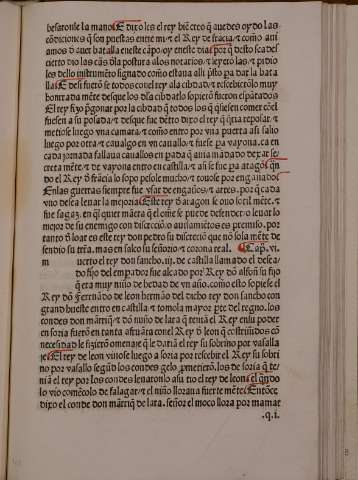 besaronle la mano. E dixoles el rey biẽ creo q̃ auedes oydo las
cõdiciones q̃ son puestas entre mi ⁊ el Rey de frãcia ⁊ como
amos õ auer batalla eneste cãpo oy eneste dia: por q̃ desto sea
cierto dio las cõs dla postura alos notarios ⁊ leyerõ las ⁊
les dello instrumẽto signado como estaua alli p̃sto pa dar la
lla. E desi fuerõ se todos con el rey ala cibdad ⁊ rescebierõlo muy
honrada mẽte desque los dla cibdad lo sopierõ fueron espãtados
El rey fizo p̃gonar por la cibdad q̃ todos los q̃ q̃siesen comer
fuesen a su posada ⁊ desque fue dẽtro dixo el rey q̃ q̃ria reposar ⁊
metiose luego vna camara ⁊ como entro por vna puerta asi salio
luego por otra ⁊ caualgo en vn cauallo ⁊ fuese pa vayona. ca en
cada jornada fallaua cauallos en pada q̃ auia mãdado dexar se
creta mẽte ⁊ de vayona entro en castilla ⁊ asi se fue pa aragõ. q̃n
do el Rey õ frãcia lo sopo pesole mucho ⁊ touose por engañado
Enlas guerras siempre fue vsar de engaños ⁊ artes. por q̃ cada
vno desea leuar la mejoria. Este rey õ aragon se ouo sotil mẽte. ⁊
fue sagaz. en q̃l quier manera q̃ el onbre se puede defender o leuar lo
mejor de su enemigo con discreciõ o ausamiẽtos es premiso. por
tanto õ loar es este rey don pedro su discreciõ que nõ sola mẽte
fendio su trr̃a. mas en saluo su señorio ⁊ corona real. Cap. vi.
m uerto el rey don sancho. iij. de castilla llamado el desea
do fijo del enpardor fue alcado por Rey dõ alfon su fijo
q̃ era muy niño de hedad de vn año. como esto sopiese el
Rey dõ Fernãdo de leon hermão del dicho rey don sancho con
grand hueste entro en castilla ⁊ tomola mayor pte del regno. los
condes don mãrriq̃ ⁊ dõ nuño de lara q̃ teniã el Rey en su poder
en soria fuerõ en tanta afruẽta con el Rey õ leon q̃ costreñidos cõ
necesidad le fizierõ omenaje q̃ le dariã el rey su sobrino por vasalla
je. El rey de leon vinose luego a soria por rescebir el Rey su sobri
no por vasallo segũd los condes gelo p̃metierõ. los de soria q̃ te
niã el rey por los condes leuaronlo asu tio el rey de leon. el q̃ndo
lo vio comẽcolo de falagar ⁊ el niño lloraua fuerte mẽte. Entõce
dixo el conde don mãrriq̃ de lara. señor el moco llora por mamar
.q.i.